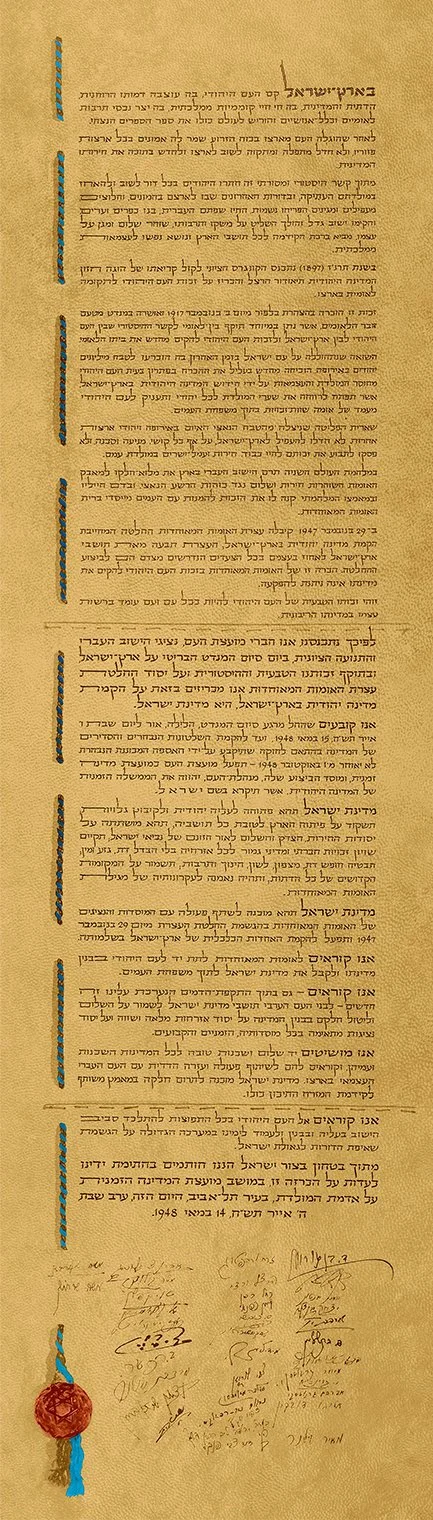 בארץ־ישראל קם העם היהודי, בה עוצבה דמותו הרוחנית,
הדתית והמדינית, בה חי חיי קוממיות ממלכתית, בה יצר נכסי תרבות
לאומיים וכלל־אנושיים והוריש לעולם כולו את ספר הספרים הנצחי.
לאחר שהוגלה העם מארצו בכוח הזרוע שמר לה אמונים בכל ארצות
פזוריו, ולא חדל מתפלה ומתקוה לשוב לארצו ולחדש בתוכה את חירותו
המדינית.
מתוך קשר היסטורי ומסורתי זה חתרו היהודים בכל דור לשוב ולהאחז
במולדתם העתיקה, ובדורות האחרונים שבו לארצם בהמונים, וחלוצים,
מעפילים ומגינים הפריחו נשמות, החיו שפתם העברית, בנו כפרים וערים,
והקימו ישוב גדל והולך השליט על משקו ותרבותו, שוחר שלום ומגן על
עצמו, מביא ברכת הקידמה לכל תושבי הארץ ונושא נפשו לעצמאות
ממלכתית.
בשנת תרנ״ז (1897) נתכנס הקונגרס הציוני לקול קריאתו של הוגה חזון
המדינה היהודית תיאודור הרצל והכריז על זכות העם היהודי לתקומה
לאומית בארצו.
זכות זו הוכרה בהצהרת בלפור מיום ב׳ בנובמבר 1917 ואושרה במנדט מטעם
חבר הלאומים, אשר נתן במיוחד תוקף בין־לאומי לקשר ההיסטורי שבין העם
היהודי לבין ארץ־ישראל ולזכות העם היהודי להקים מחדש את ביתו הלאומי.
השואה שנתחוללה על עם ישראל בזמן האחרון, בה הוכרעו לטבח מיליונים
יהודים באירופה, הוכיחה מחדש בעליל את ההכרח בפתרון בעית העם היהודי
מחוסר המולדת והעצמאות על־ידי חידוש המדינה היהודית בארץ־ישראל,
אשר תפתח לרווחה את שערי המולדת לכל יהודי ותעניק לעם היהודי
מעמד של אומה שוות־זכויות בתוך משפחת העמים.
שארית הפליטה שניצלה מהטבח הנאצי האיום באירופה ויהודי ארצות
אחרות לא חדלו להעפיל לארץ־ישראל, על אף כל קושי, מניעה וסכנה, ולא
פסקו לתבוע את זכותם לחיי כבוד, חירות ועמל־ישרים במולדת עמם.
במלחמת העולם השניה תרם הישוב העברי בארץ את מלוא־חלקו למאבק
האומות השוחרות חירות ושלום נגד כוחות הרשע הנאצי, ובדם חייליו
ובמאמצו המלחמתי קנה לו את הזכות להמנות עם העמים מייסדי ברית
האומות המאוחדות.
ב־29 בנובמבר 1947 קיבלה עצרת האומות המאוחדות החלטה המחייבת
הקמת מדינה יהודית בארץ־ישראל, העצרת תבעה מאת תושבי
ארץ־ישראל לאחוז בעצמם בכל הצעדים הנדרשים מצדם הם לביצוע
ההחלטה. הכרה זו של האומות המאוחדות בזכות העם היהודי להקים את
מדינתו אינה ניתנת להפקעה.
זוהי זכותו הטבעית של העם היהודי להיות ככל עם ועם עומד ברשות
עצמו במדינתו הריבונית.
לפיכך נתכנסנו אנו חברי מועצת העם, נציגי הישוב העברי
והתנועה הציונית, ביום סיום המנדט הבריטי על ארץ־ישראל
ובתוקף זכותנו הטבעית וההיסטורית ועל יסוד החלטת
עצרת האומות המאוחדות אנו מכריזים בזאת על הקמת
מדינה יהודית בארץ־ישראל, היא מדינת ישראל.
אנו קובעים שהחל מרגע סיום המנדט, הלילה, אור ליום שבת ו׳
אייר תש״ח, 15 במאי 1948, ועד להקמת השלטונות הנבחרים והסדירים
של המדינה בהתאם לחוקה שתיקבע על־ידי האספה המכוננת הנבחרת
לא יאוחר מ־1 באוקטובר 1948 - תפעל מועצת העם כמועצת מדינה
זמנית, ומוסד הביצוע שלה, מנהלת־העם, יהווה את הממשלה הזמנית
של המדינה היהודית, אשר תיקרא בשם ישראל.
מדינת ישראל תהא פתוחה לעליה יהודית ולקיבוץ גלויות,
תשקוד על פיתוח הארץ לטובת כל תושביה, תהא מושתתה על
יסודות החירות, הצדק והשלום לאור חזונם של נביאי ישראל, תקיים
שויון זכויות חברתי ומדיני גמור לכל אזרחיה בלי הבדל דת, גזע ומין,
תבטיח חופש דת, מצפון, לשון, חינוך ותרבות, תשמור על המקומות
הקדושים של כל הדתות, ותהיה נאמנה לעקרונותיה של מגילת
האומות המאוחדות.
מדינת ישראל תהא מוכנה לשתף פעולה עם המוסדות והנציגים
של האומות המאוחדות בהגשמת החלטת העצרת מיום 29 בנובמבר
1947 ותפעל להקמת האחדות הכלכלית של ארץ־ישראל בשלמותה.
אנו קוראים לאומות המאוחדות לתת יד לעם היהודי בבנין
מדינתו ולקבל את מדינת ישראל לתוך משפחת העמים.
אנו קוראים - גם בתוך התקפת־הדמים הנערכת עלינו זה
חדשים - לבני העם הערבי תושבי מדינת ישראל לשמור על השלום
וליטול חלקם בבנין המדינה על יסוד אזרחות מלאה ושווה ועל יסוד
נציגות מתאימה בכל מוסדותיה, הזמניים והקבועים.
אנו מושיטים יד שלום ושכנות טובה לכל המדינות השכנות
ועמיהן, וקוראים להם לשיתוף פעולה ועזרה הדדית עם העם העברי
העצמאי בארצו. מדינת ישראל מוכנה לתרום חלקה במאמץ משותף
לקידמת המזרח התיכון כולו.
אנו קוראים אל העם היהודי בכל התפוצות להתלכד סביב
הישוב בעליה ובבנין ולעמוד לימינו במערכה הגדולה על הגשמת
שאיפת הדורות לגאולת ישראל.
מתוך בטחון בצור ישראל הננו חותמים בחתימת ידינו
לעדות על הכרזה זו, במושב מועצת המדינה הזמנית,
על אדמת המולדת, בעיר תל־אביב, היום הזה, ערב שבת,
ה׳ אייר תש״ח, 14 במאי 1948.
ד. בן גוריון
מאיר וילנר